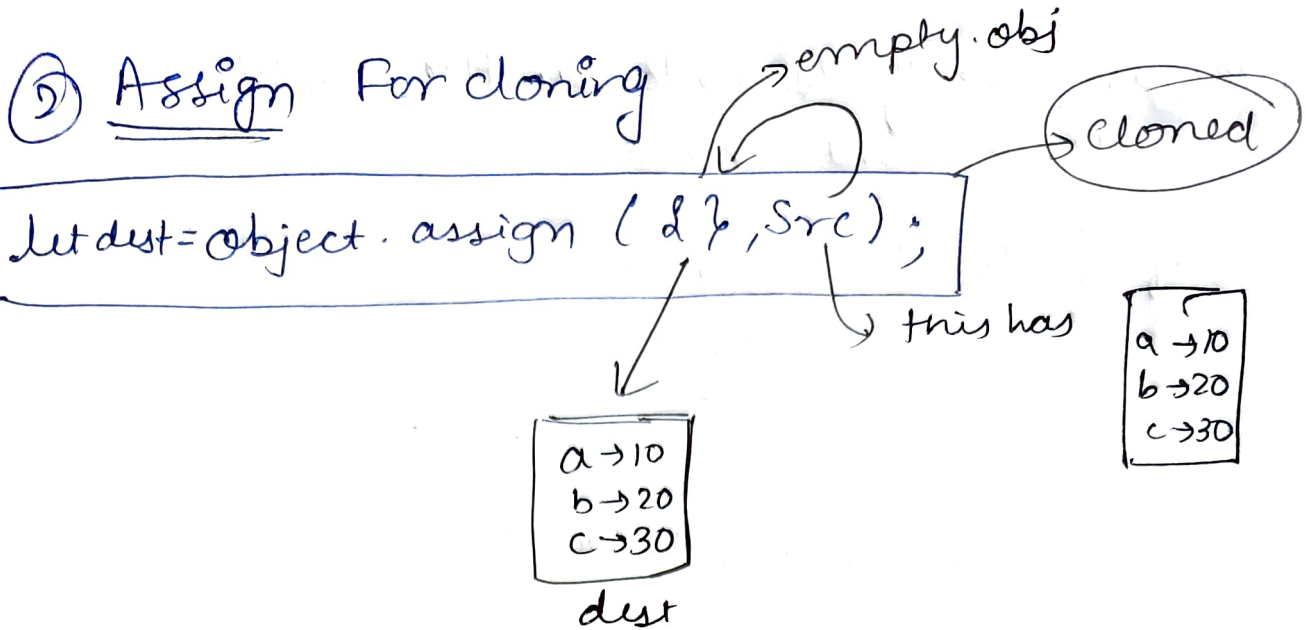 ② Assign For cloning
empty.obj
cloned
let dest=object. assign ({},Src);
this has
a→10
b→20
c→30
a→10
b→20
c→30
dest